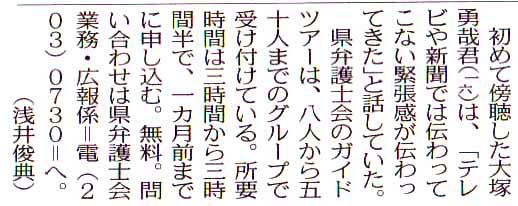 初めて傍聴した大塚
勇哉君(一六)は、「テレ
ビや新聞では伝わって
こない緊張感が伝わっ
てきた」と話していた。
県弁護士会のガイド
ツアーは、八人から五
十人までのグループで
受け付けている。所要
時間は三時間から三時
間半で、一カ月前まで
に申し込む。無料。問
い合わせは県弁護士会
業務・広報係＝電(２
０３)０７３０＝へ。
(浅井俊典)